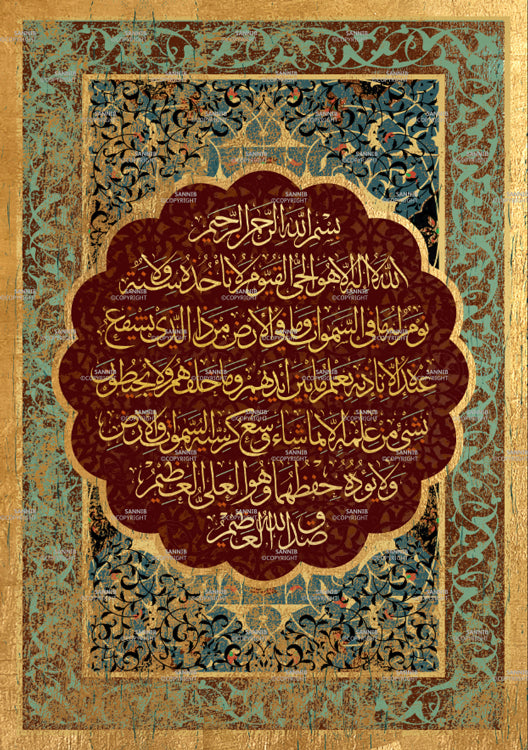 بسم الله الرحمن الرحيم
الله لا اله الا هو الحي القيوم لا تأخذه سنة ولا
نوم له ما في السموات وما في الأرض من ذا الذي يشفع
عنده إلا بإذنه يعلم ما بين أيديهم وما خلفهم ولا يحيطون
بشيء من علمه إلا بما شاء وسع كرسيه السموات والأرض
ولا يؤده حفظهما وهو العلي العظيم
صدق الله العظيم
SANNIB
©COPYRIGHT